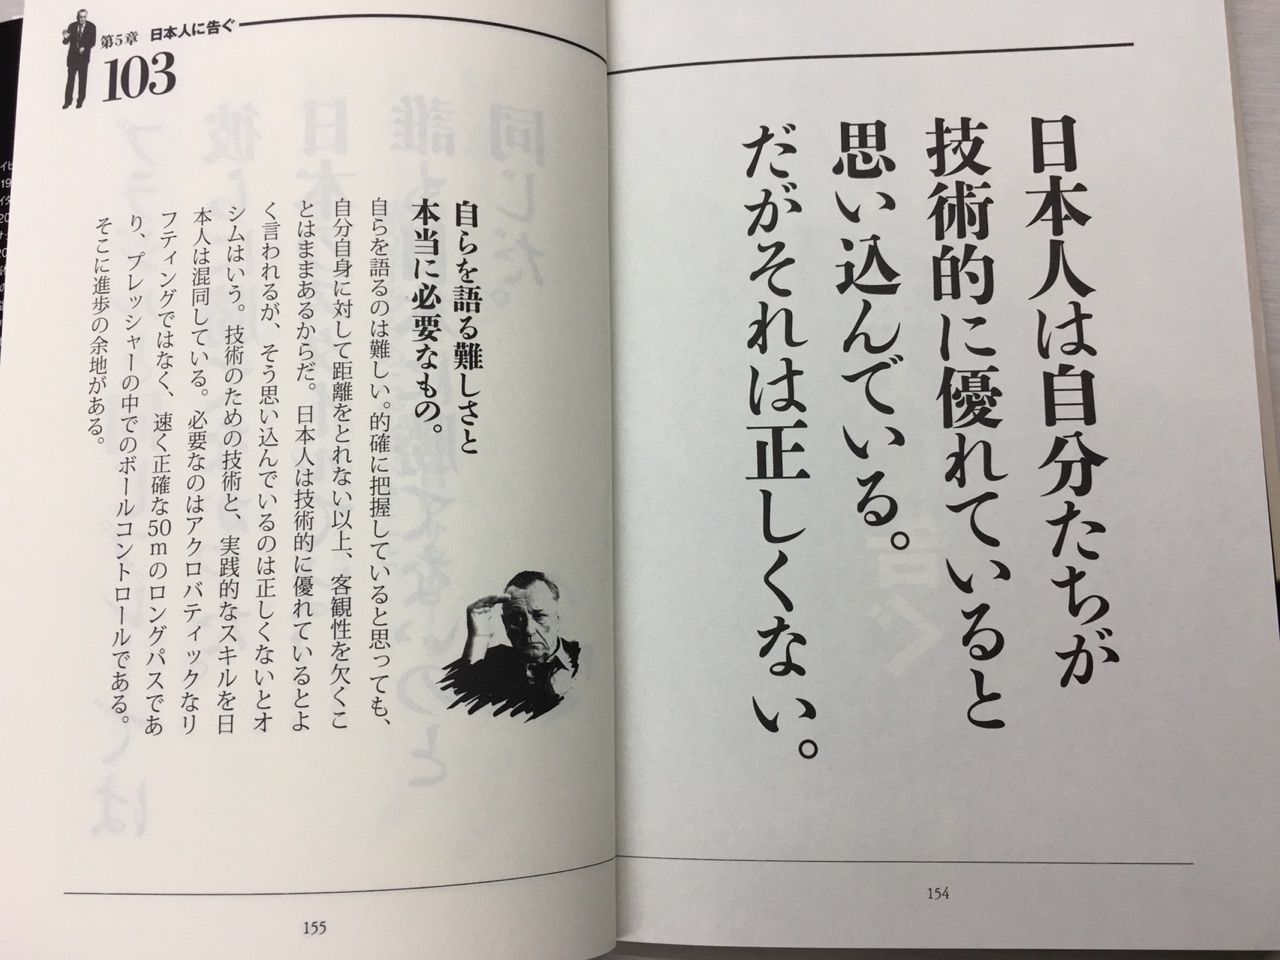 154
日本人は自分たちが
技術的に優れていると
思い込んでいる。
だがそれは正しくない。
154
第5章 日本人に告ぐ
103
自らを語る難しさと
本当に必要なもの。
自らを語るのは難しい。的確に把握していると思っても、
自分自身に対して距離をとれない以上、客観性を欠くこ
とはままあるからだ。日本人は技術的に優れているとよ
く言われるが、そう思い込んでいるのは正しくないとオ
シムはいう。技術のための技術と、実践的なスキルを日
本人は混同している。必要なのはアクロバティックなリ
フティングではなく、速く正確な50mのロングパスであ
り、プレッシャーの中でのボールコントロールである。
そこに進歩の余地がある。
155